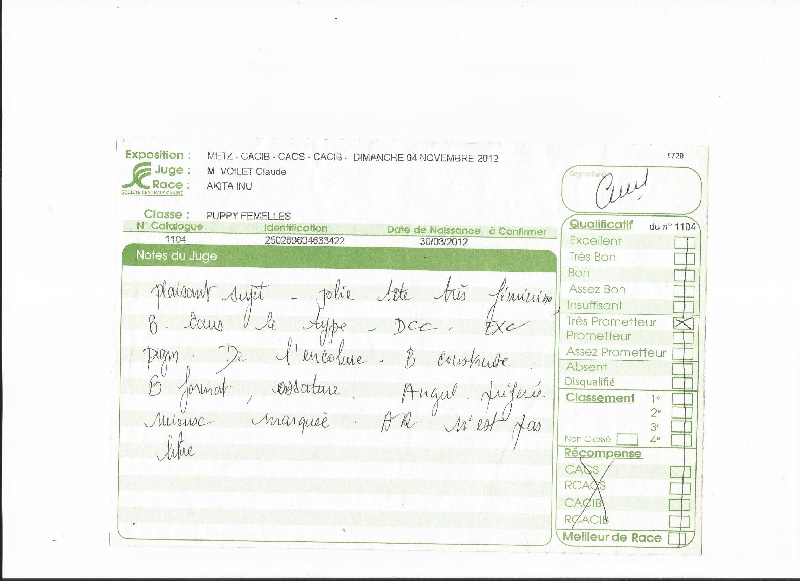 Exposition : METZ - CACIB - CACS - CACIB - DIMANCHE 04 NOVEMBRE 2012
Juge : M. VOILET Claude
Race : AKITA INU
Classe : PUPPY FEMELLES
N° Catalogue Identification Date de Naissance à Confirmer
1104 250269604633422 30/03/2012
Notes du Juge
plaisant sujet - jolie tête très féminine,
B. dans le type - DCC. EXC
pigm. De l'encolure. B construite.
B format, ossature. Angul. préférée
mieux marquée. AR n'est pas
libre
Signature
Qualificatif du n° 1104
Excellent
Très Bon
Bon
Assez Bon
Insuffisant
Très Prometteur
Prometteur
Assez Prometteur
Absent
Disqualifié
Classement 1°
2°
3°
Non Classé 4°
Récompense
CACS
RCACS
CACIB
RCACIB
Meilleur de Race